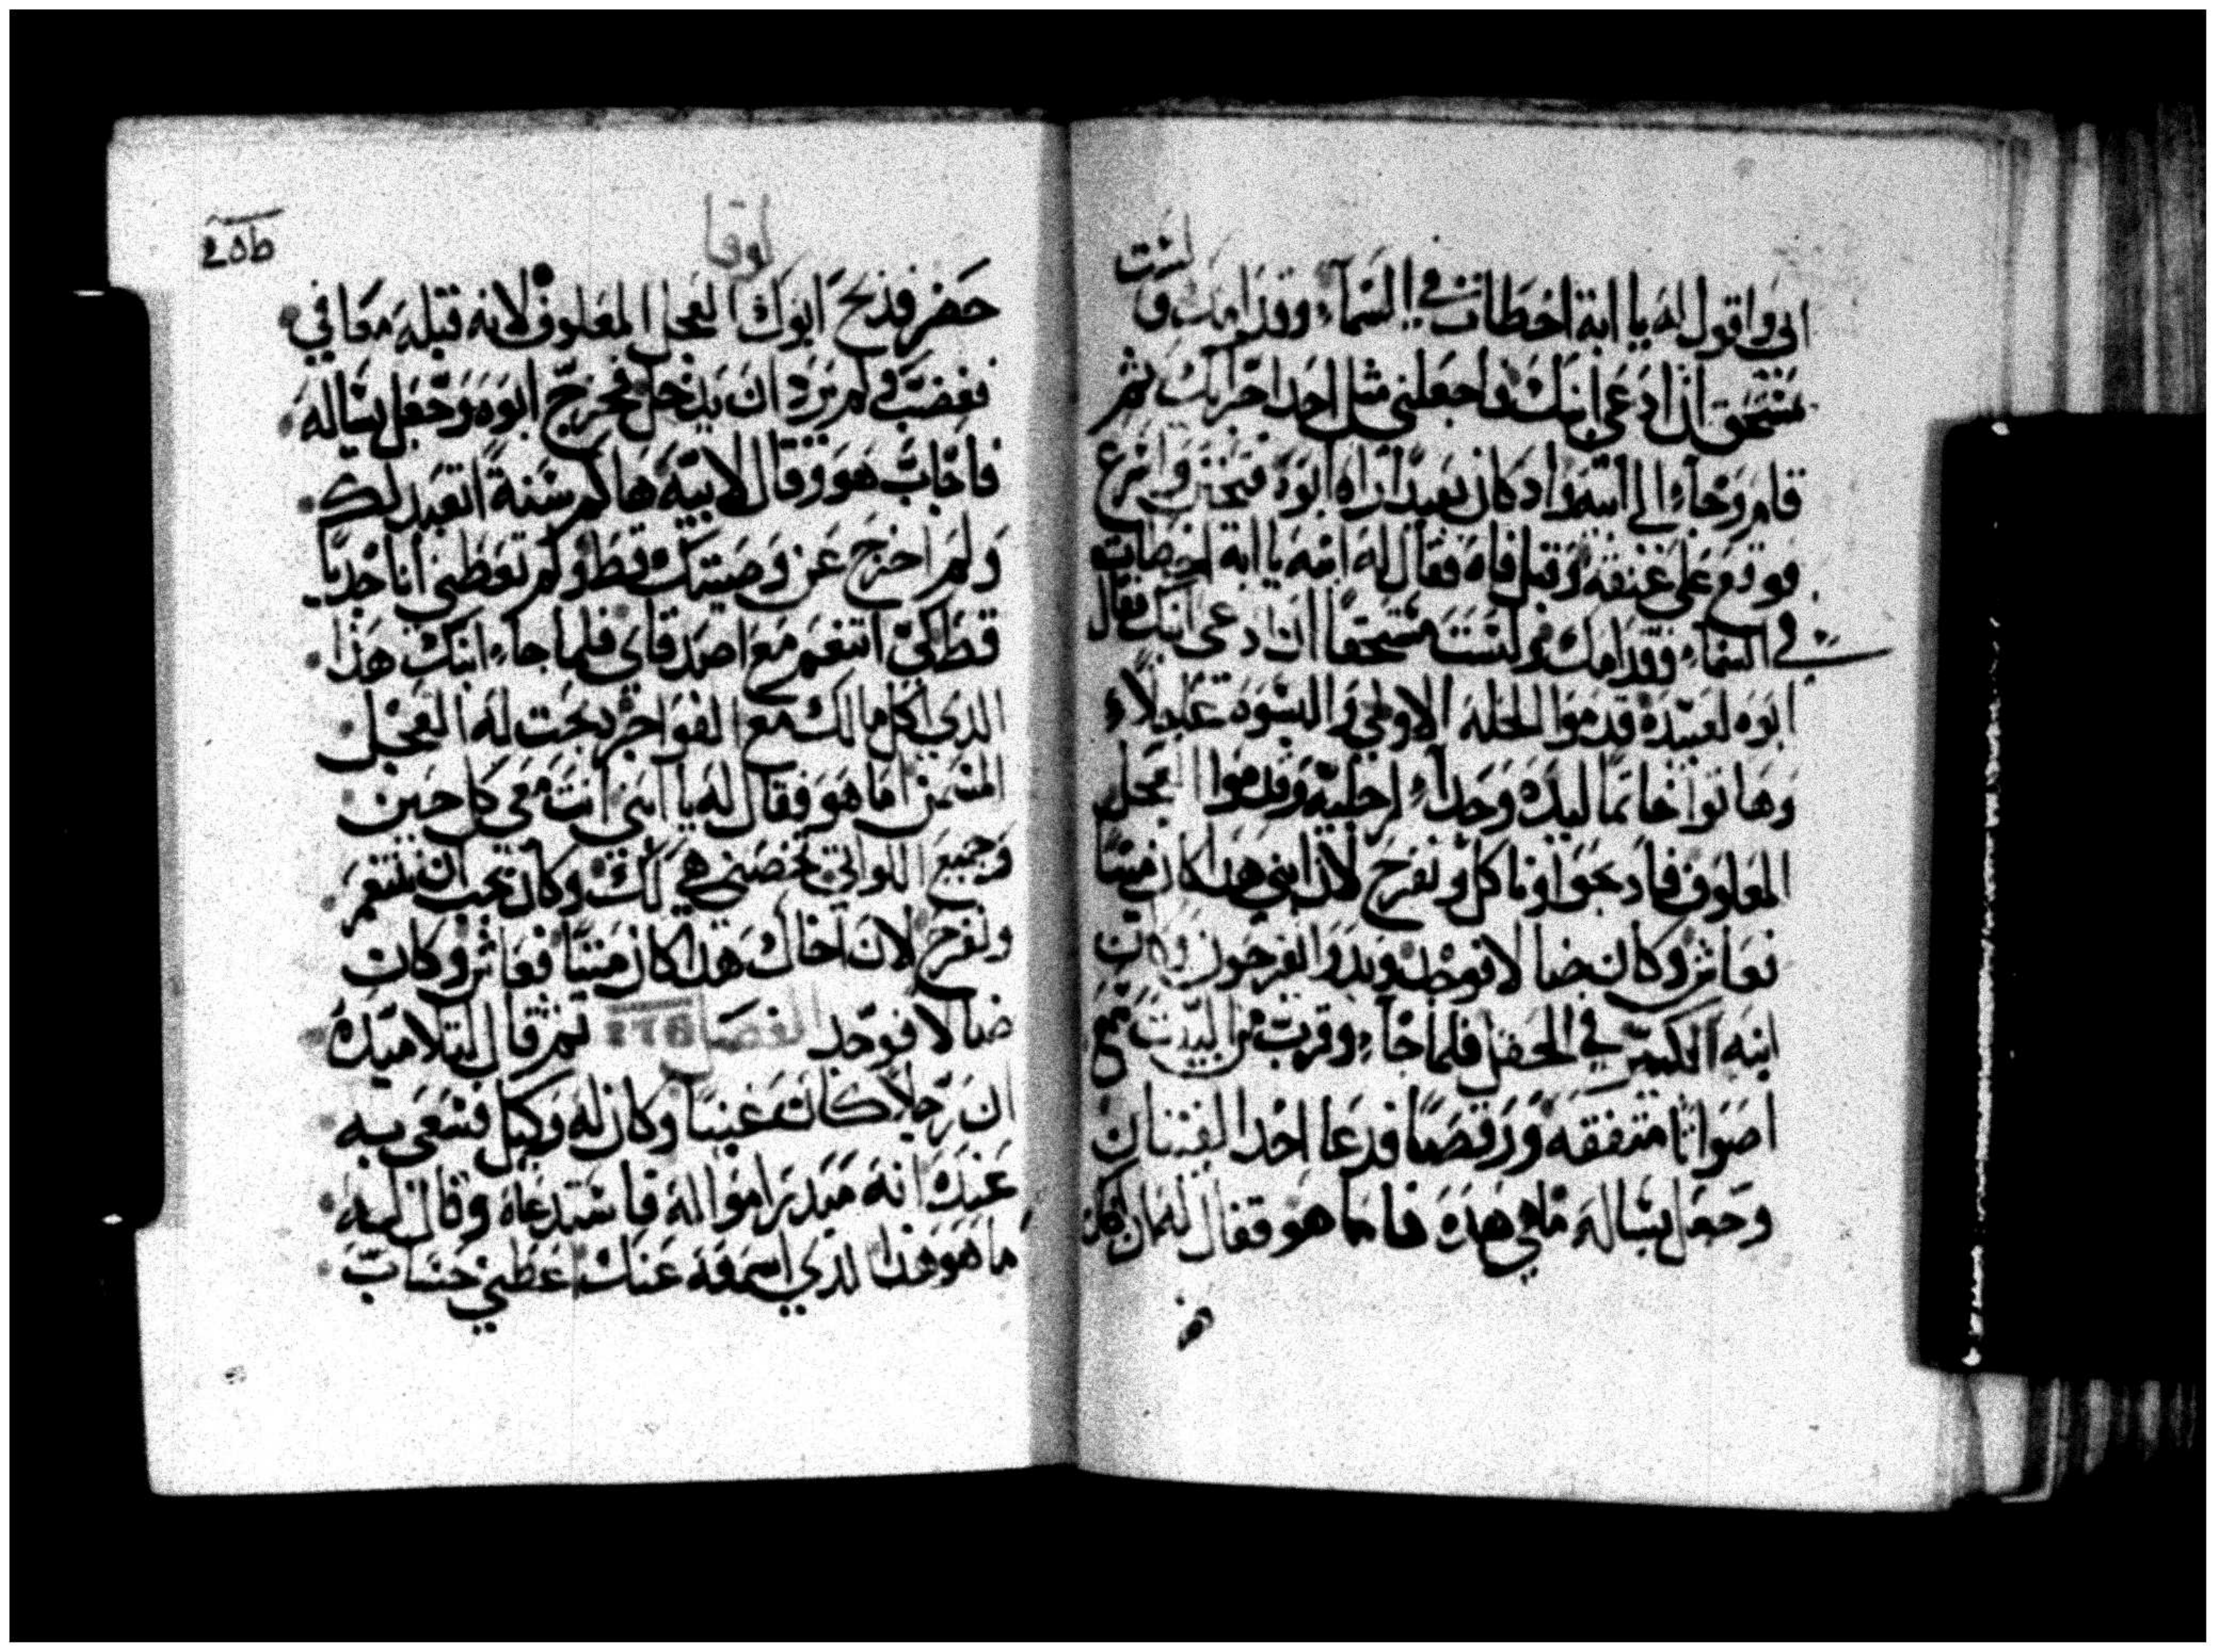 ابي واقول له يا ابة اخطات في السماء وقدامك ولست
مستحق ان ادعى ابنك واجعلني مثل احد اجرايك ثم
قام وجاء الى ابيه واد كان بعيدا راه ابوه فتحنن واسرع
فوقع على عنقه وقبل فاه فقال له ابنه يا ابة اخطات
في السماء وقدامك ولست مستحقا ان ادعى ابنك فقال
ابوه لعبيده قدموا الحلة الاولي والبسوة عجلاء
وهاتوا خاتما ليده وحداء لرجليه وقدموا العجل
المعلوف فادبحوا وناكل ونفرح لان ابني هدا كان ميتا
فعاش وكان ضالا فوجد وبدوا يفرحون وكان
ابنه الكبير في الحقل فلما جاء وقرب من البيت سمع
اصواتا متفقه ورقصا فدعا احد الفتيان
وجعل يساله ما هي هده فاما هو فقال له ان اخاك
لوقا
حضر فدبح ابوك العجل المعلوف لانه قبله معافي
فغضب فلم يرد ان يدخل فخرج ابوه وجعل يساله
فاجاب هو وقال لابيه ها كم سنة اتعبد لك
ولم اخرج عن وصيتك قط ولم تعطني انا جديا
قط لكي اتنعم مع اصدقاي فلما جاء ابنك هدا
الدي اكل مالك مع الفواجر دبحت له العجل
المسمن اما هو فقال له يا ابني انت معي كل حين
وجميع اللواتي تخصني هي لك وكان يجب ان نتنعم
ونفرح لان اخاك هدا كان ميتا فعاش وكان
ضالا فوجد الفصل ثم قال لتلاميده
ان رجلا كان غنيا وكان له وكيل فسعى به
عنده انه مبدر امواله فاستدعاه وقال له
ما هو هدا الدي اسمعه عنك اعطني حساب